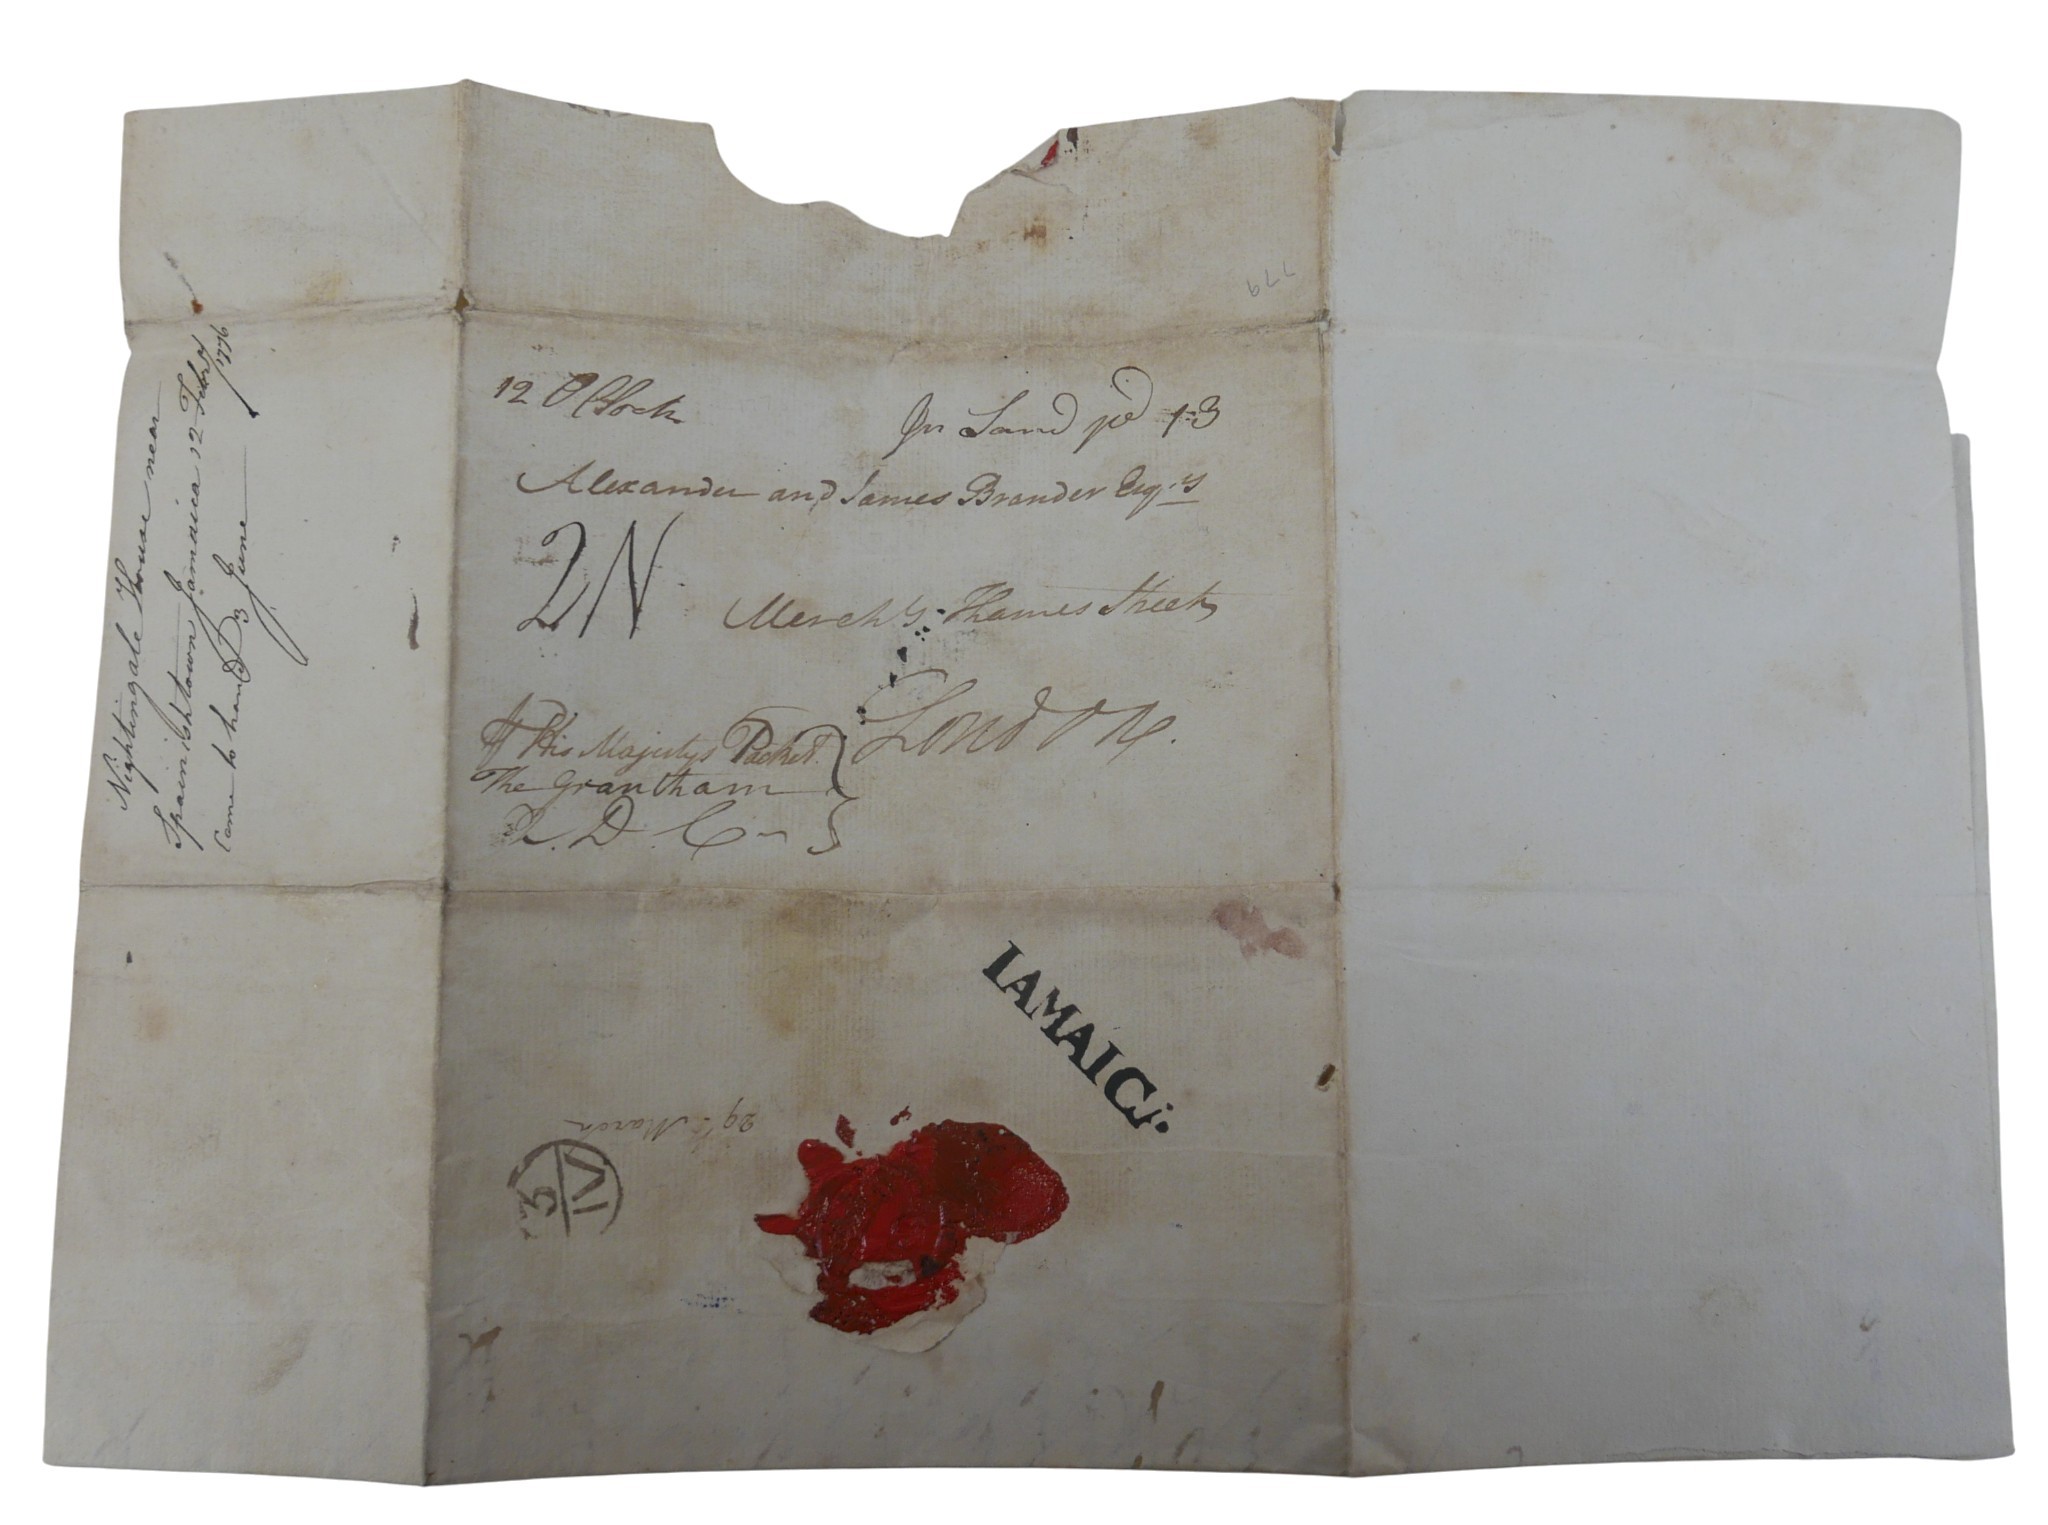 Nightingale House near
Spainishtown Jamaica 22 Febry
1776
Came to hand 3 June
779
12 OClock
In Land pd 1:3
Alexander and James Brander Esqrs
2N
Merchts. Thames Street
London.
His Majestys Packet
The Grantham
Q. D. C
IAMAICA
29th March
3
IV